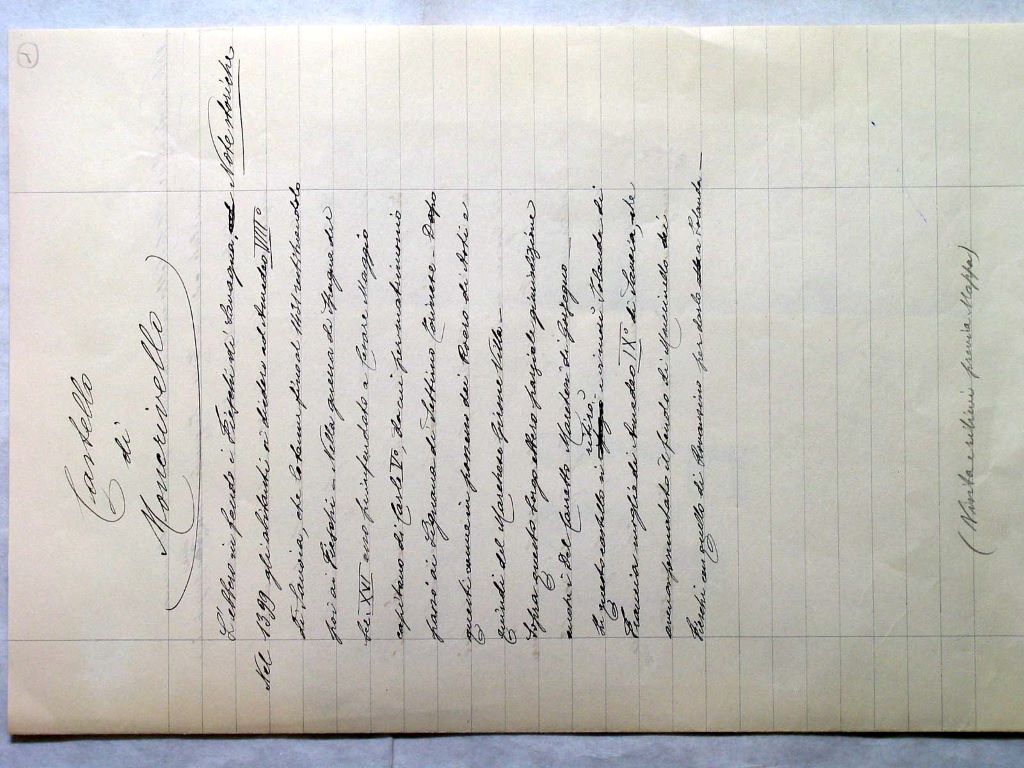 1
Castello
di
Moncrivello
Note storiche
L'ebbero in feudo i Fieschi di Lavagna.
Nel 1399 gli abitanti si diedero ad Amedeo VIII°
di Savoia, che lo tenne fino al restituendolo
poi ai Fieschi - Nella guerra di Spagna del
sec. XVI esso fu infeudato a Cesare Maggio
capitano di Carlo V°, da cui per matrimonio
passò ai Signana di Settimo Torinese - Dopo
questi venne in possesso dei Roero di Asti e
quindi del Marchese Grisone Villa. -
Sopra questo borgo ebbero parziale giurisdizione
anche i Del Carretto Marchesi di Gorzegno
In questo castello si ritirò e vi morì Iolanda di
Francia moglie di Amedeo IX° di Savoia, che
aveva permutato il feudo di Moncrivello dei
Fieschi con quello di Masserano per darlo a Iolanda -
(Visita e schizzi presso Mappa)